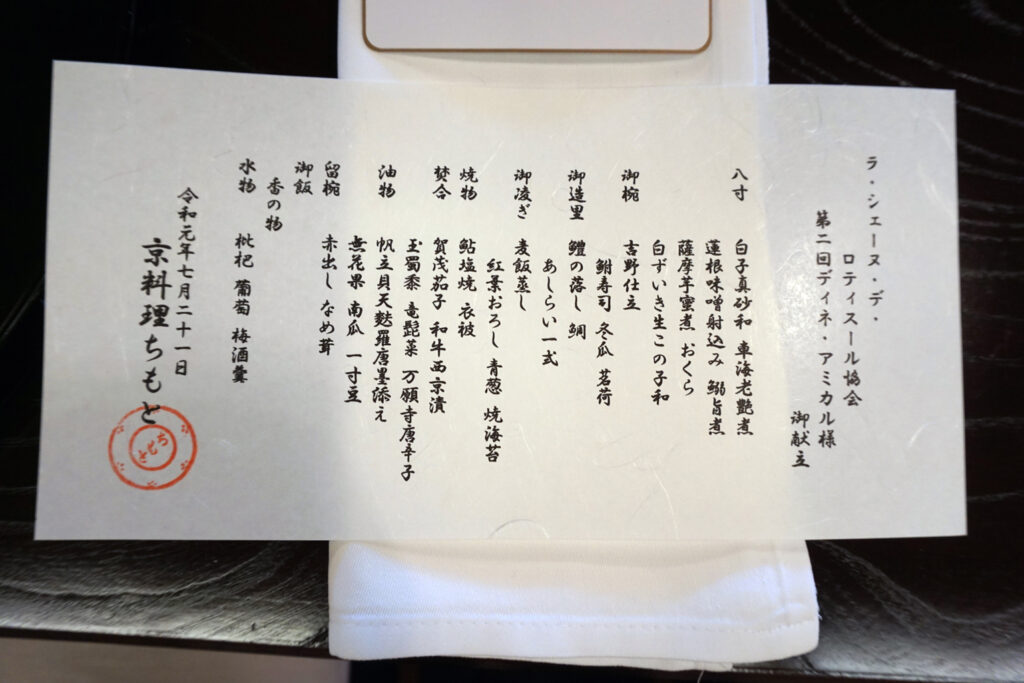 ラ・シェーヌ・デ・
ロティスール協会
第二回ディネ・アミカル様
御献立
八寸 白子真砂和 車海老艶煮
蓮根味噌射込み 鰯旨煮
薩摩芋蜜煮 おくら
白ずいき生この子和
御椀 吉野仕立
鮒寿司 冬瓜 茗荷
御造里 鱧の落し 鯛
あしらい一式
御凌ぎ 麦飯蒸し
紅葉おろし 青葱 焼海苔
焼物 鮎塩焼 衣被
焚合 賀茂茄子 和牛西京漬
玉蜀黍 竜髭菜 万願寺唐辛子
油物 帆立貝天麩羅唐墨添え
無花果 南瓜 一寸豆
留椀 赤出し なめ茸
御飯
香の物
水物 枇杷 葡萄 梅酒羹
令和元年七月二十一日
京料理ちもと
ちもと